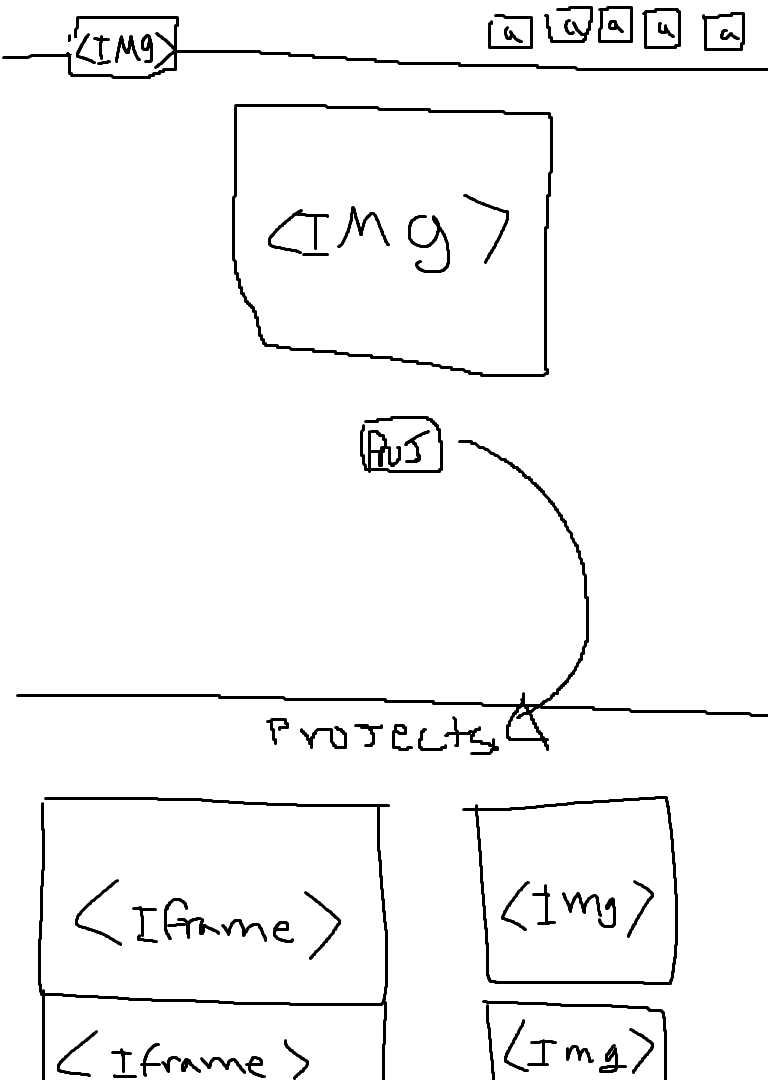 <IMg> a a a a a
<IMg>
ProJ
Projects
<Iframe> <Img>
<Iframe> <Img>